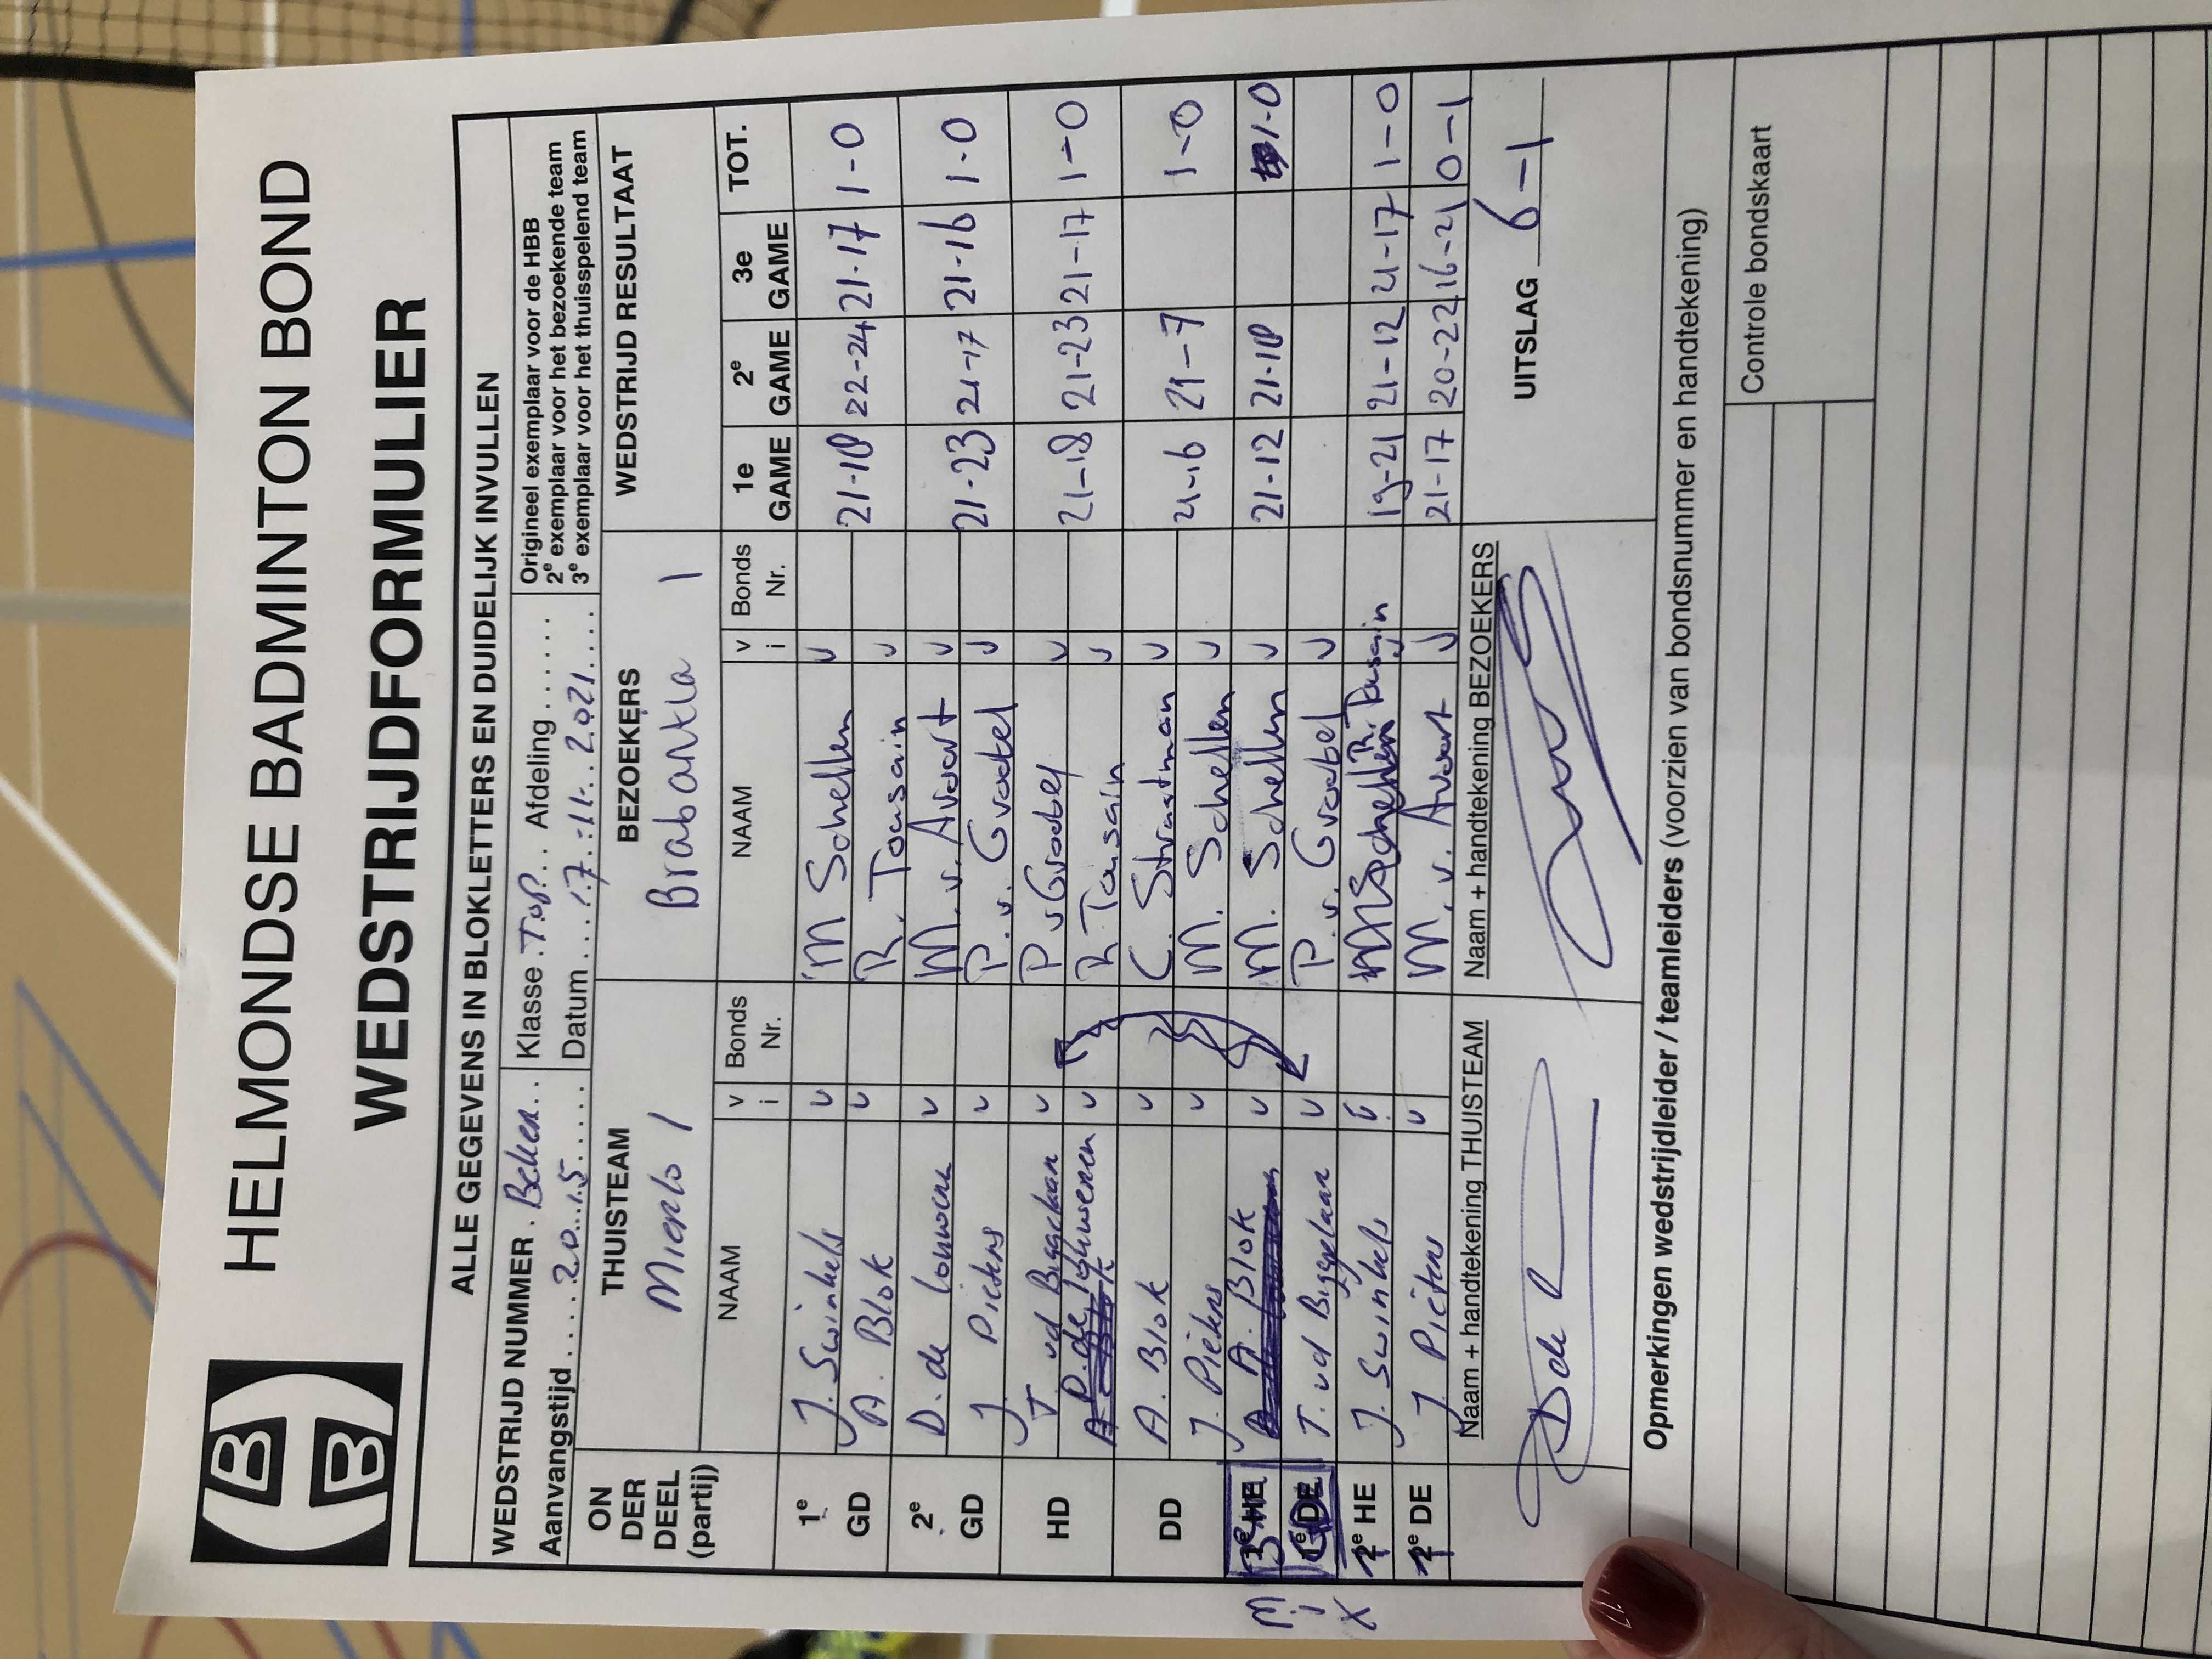 HBB
HELMONDSE BADMINTON BOND
WEDSTRIJDFORMULIER
ALLE GEGEVENS IN BLOKLETTERS EN DUIDELIJK INVULLEN
WEDSTRIJD NUMMER . Beker . . Klasse . Top . . Afdeling . . . . . .
Aanvangstijd . . . . . 20..15. . . . . Datum . . . 17.-11-. 2021. . . .
Origineel exemplaar voor de HBB
2e exemplaar voor het bezoekende team
3e exemplaar voor het thuisspelend team
ON DER DEEL (partij) THUISTEAM BEZOEKERS WEDSTRIJD RESULTAAT
Mierlo 1 Brabantia 1
NAAM v i Bonds Nr. NAAM v i Bonds Nr. 1e GAME 2e GAME 3e GAME TOT.
1e J. Swinkels v M Schellen v
GD A. Blok v R. Tousain v 21-18 22-24 21-17 1-0
2e D. de Louwere v M. v. Avoort v
GD J. Pieters v P. v. Grootel v 21-23 21-17 21-16 1-0
HD T vd Biggelaar v P v Grootel v 21-18 21-23 21-17 1-0
D. de Louweren v R. Tousain v
DD A. Blok v C. Straatman v
J. Pieters v M. Schellen v 21-16 21-7 1-0
M i x 3e GD A. Blok v M. Schellen v 21-12 21-10 1-0
T. vd Biggelaar v P. v. Grootel v
1e HE J. Swinkels v R. Tousain v 19-21 21-12 21-17 1-0
1e DE J Pieters v M. v. Avoort v 21-17 20-22 16-21 0-1
Naam + handtekening THUISTEAM Naam + handtekening BEZOEKERS
UITSLAG 6-1
Opmerkingen wedstrijdleider / teamleiders (voorzien van bondsnummer en handtekening)
Controle bondskaart